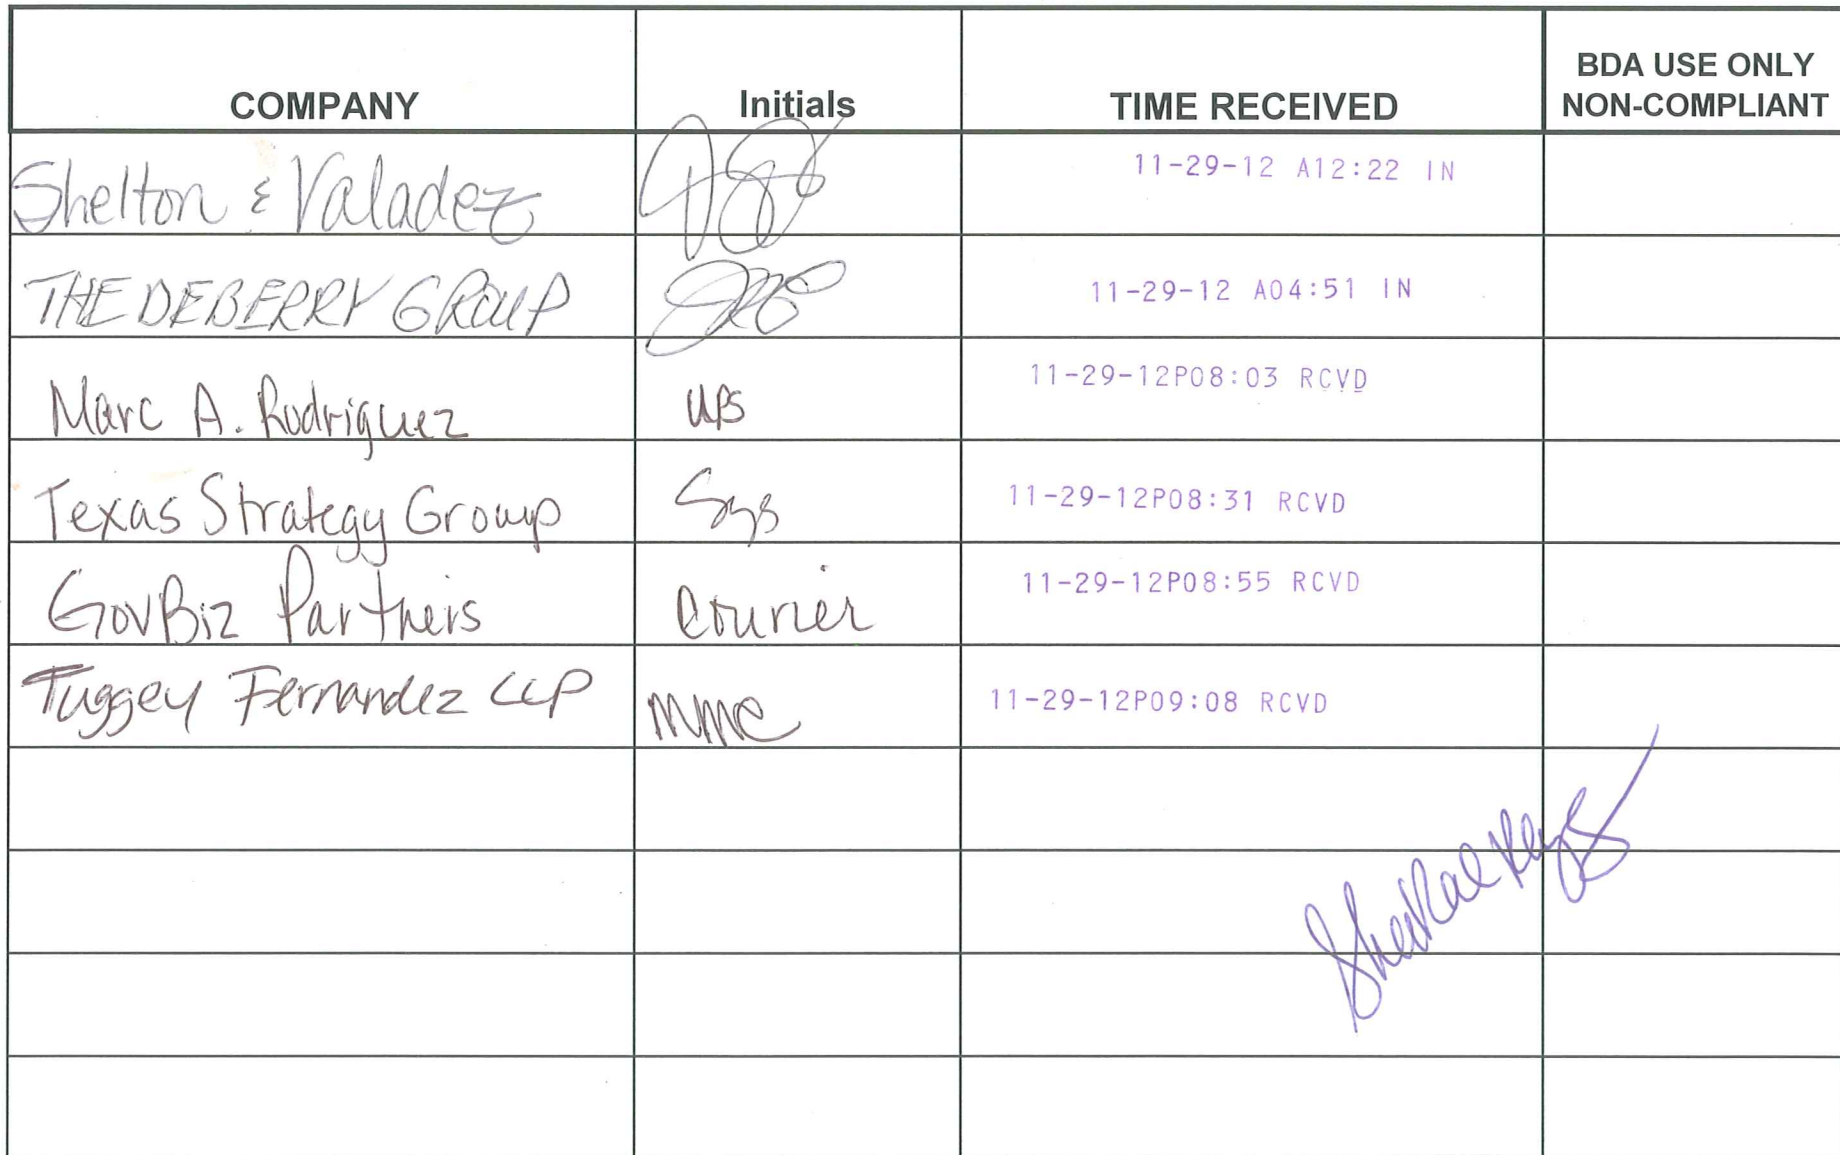 COMPANY Initials TIME RECEIVED BDA USE ONLY NON-COMPLIANT
Shelton & Valadez 11-29-12 A12:22 IN
THE DEBERRY GROUP 11-29-12 A04:51 IN
Marc A. Rodriguez UPS 11-29-12P08:03 RCVD
Texas Strategy Group 11-29-12P08:31 RCVD
GovBiz Partners Courier 11-29-12P08:55 RCVD
Tuggey Fernandez LLP mmc 11-29-12P09:08 RCVD